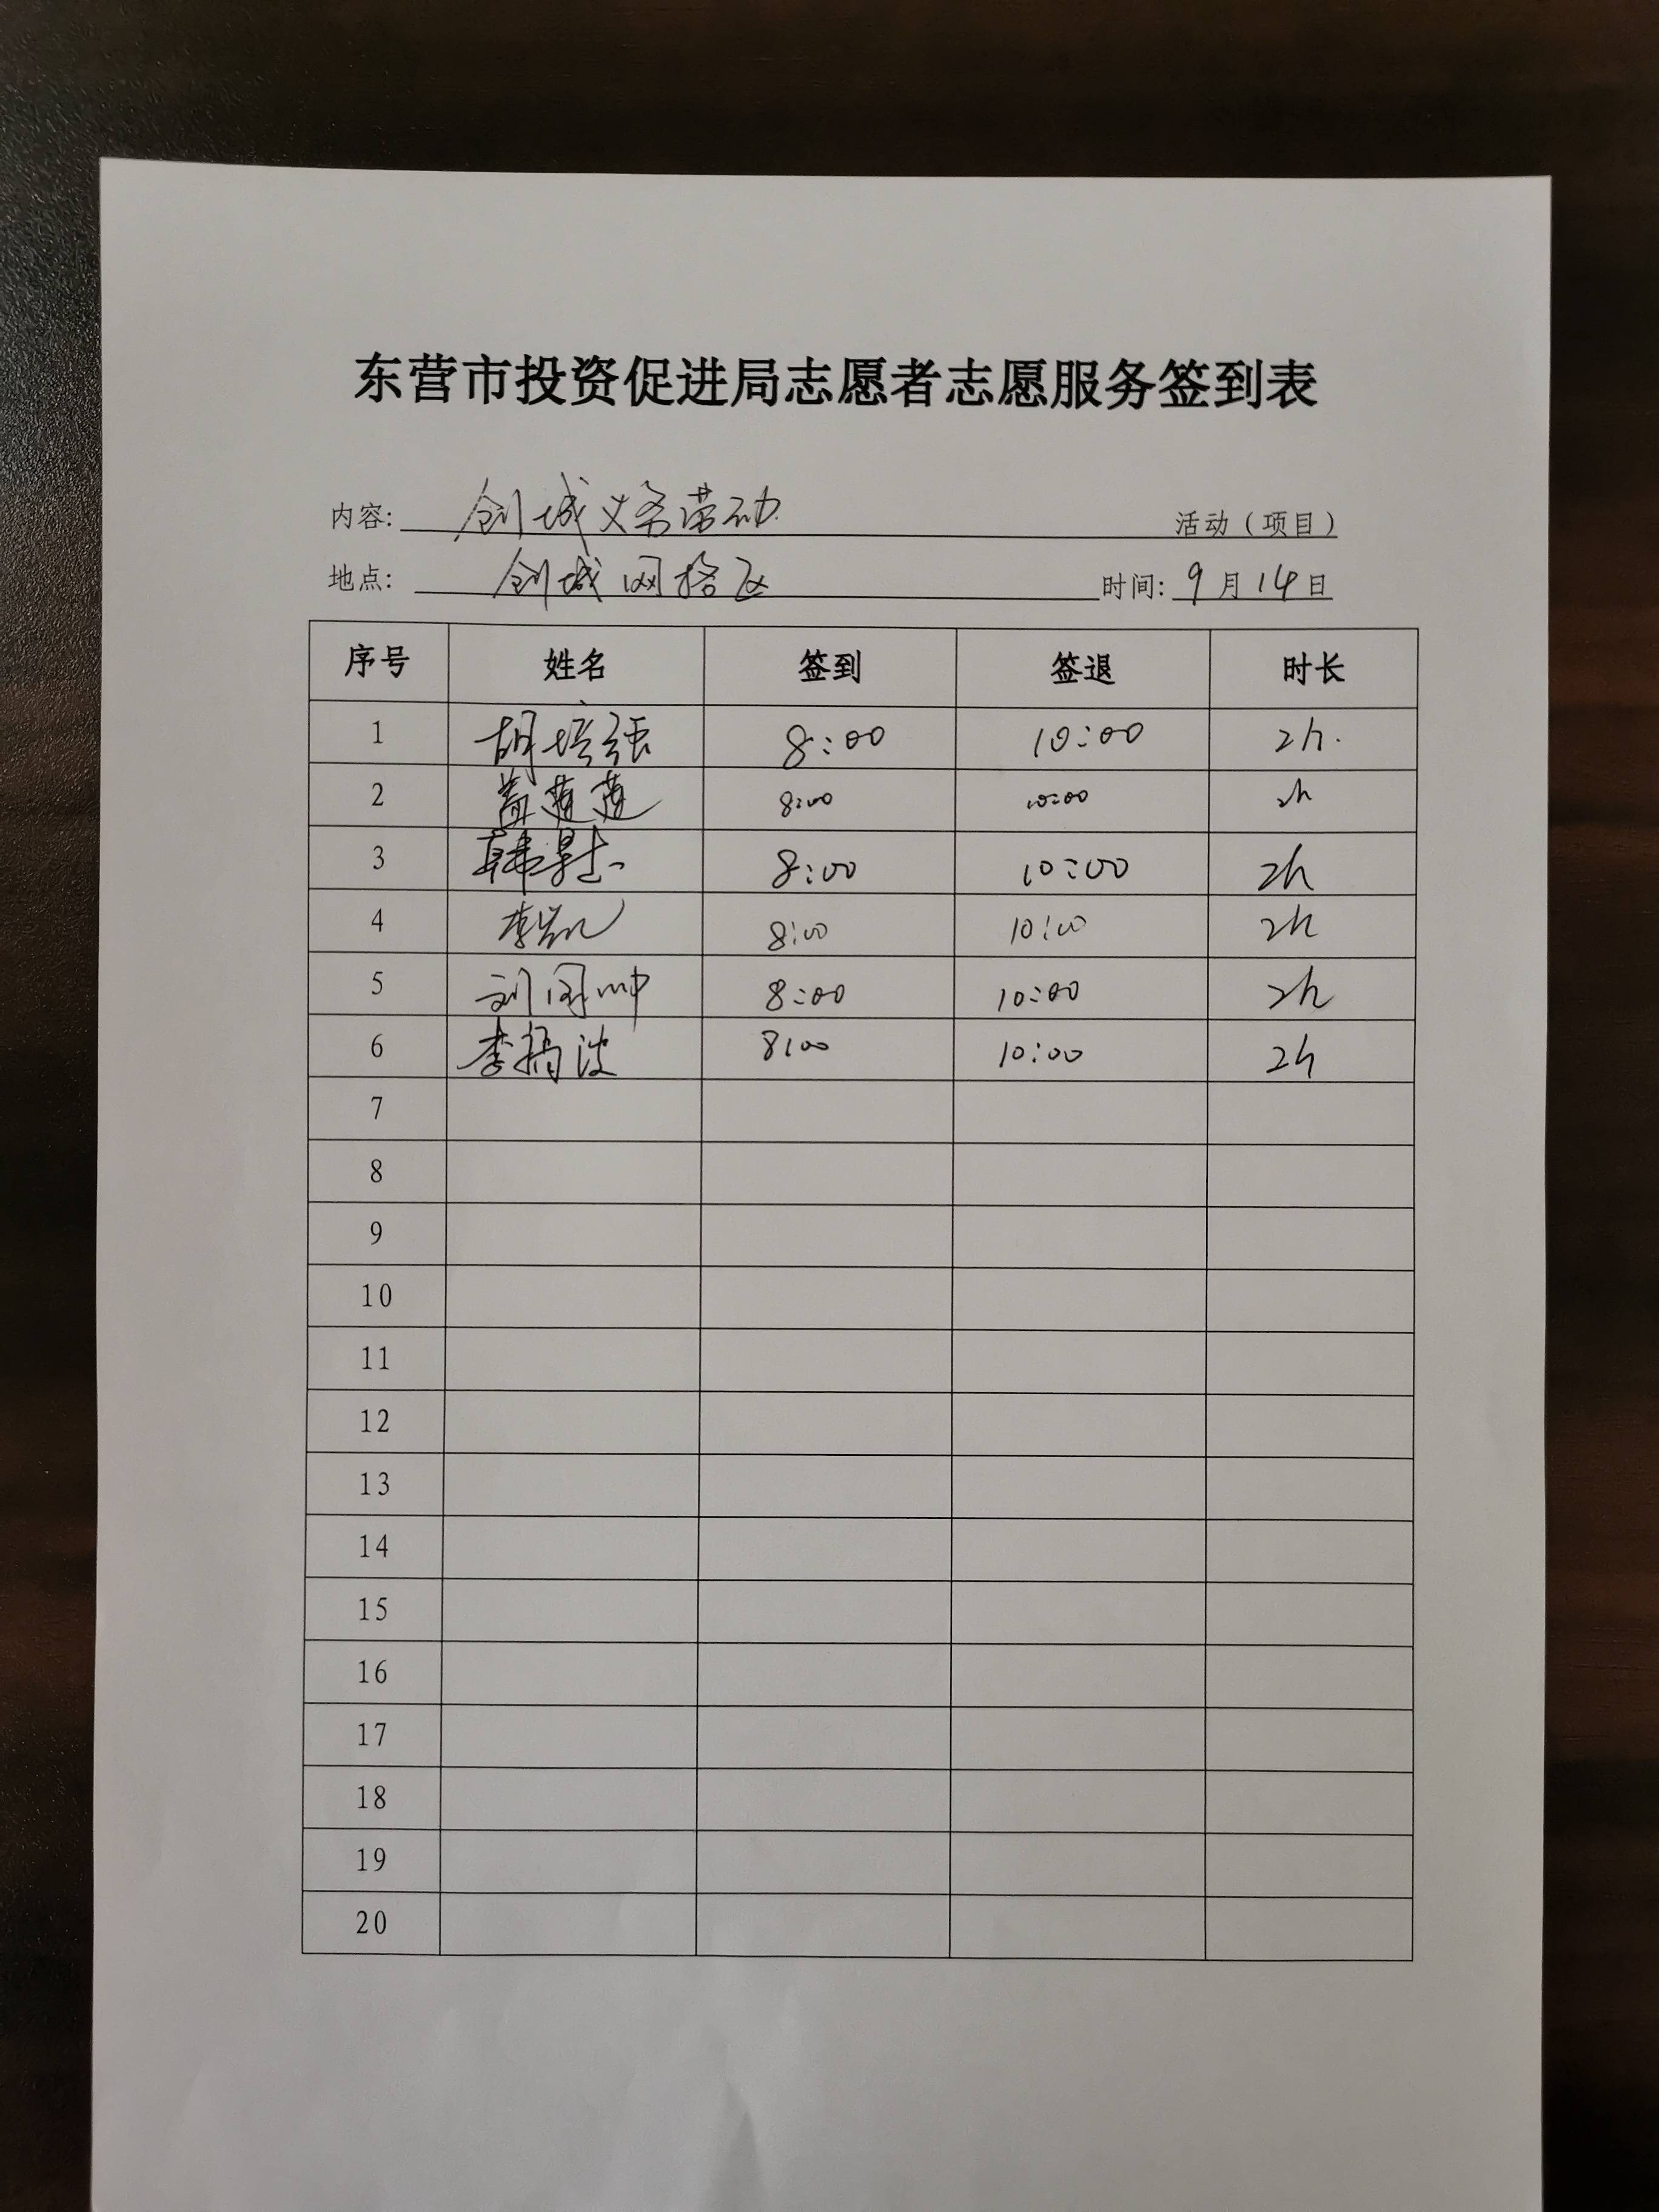 东营市投资促进局志愿者志愿服务签到表
内容: 创城义务劳动 活动（项目）
地点: 创城网格区 时间: 9月14日
序号 姓名 签到 签退 时长
1 胡培强 8:00 10:00 2h.
2 盖莲莲 8:00 10:00 2h
3 韩 8:00 10:00 2h
4 李凯 8:00 10:00 2h
5 刘国帅 8:00 10:00 2h
6 李 波 8:00 10:00 2h
7
8
9
10
11
12
13
14
15
16
17
18
19
20